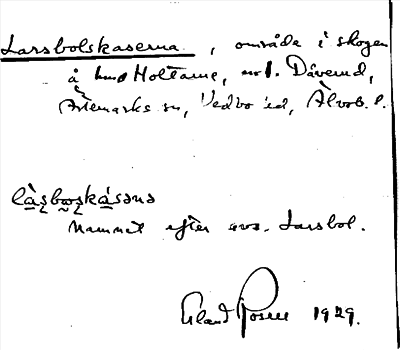 Larsbolskaserna, område i skogen
å hmd Holtane, nr 1. Däverud,
Ärtemarks sn, Vedbo hd, Älvsb. l.
làʂbo̰ʂkásəna
Namnet efter avs. Larsbol.
Erland Rosell 1929.